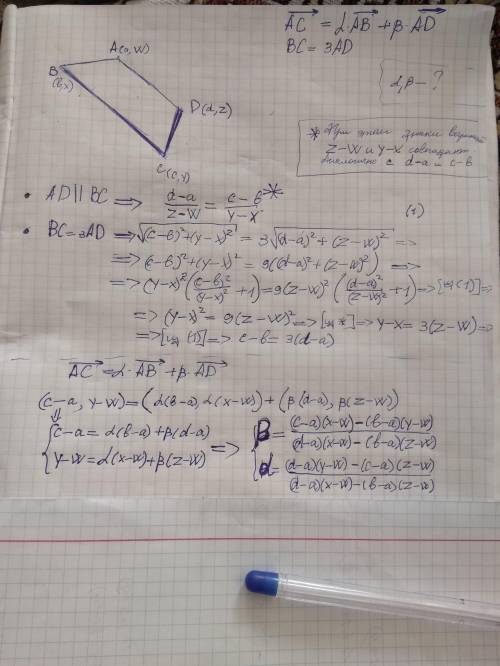 AC = α·AB + β·AD
BC = 3AD
α, β — ?
A(a, w)
B
(b, x)
D(d, z)
C(c, y)
* При этом знаки величин
z-w и y-x совпадают
с d-a и c-b
• AD || BC => (d-a)/(z-w) = (c-b)/(y-x) * (1)
• BC = 3AD => √((c-b)²+(y-x)²) = 3√((d-a)²+(z-w)²) =>
=> (c-b)²+(y-x)² = 9((d-a)²+(z-w)²) =>
=> (y-x)²((c-b)²/(y-x)² + 1) = 9(z-w)²((d-a)²/(z-w)² + 1) => [из (1)] =>
=> (y-x)² = 9(z-w)² => [из *] => y-x = 3(z-w) =>
=> [из (1)] => c-b = 3(d-a)
AC = α·AB + β·AD
(c-a, y-w) = (α(b-a), α(x-w)) + (β(d-a), β(z-w))
⇓
{ c-a = α(b-a) + β(d-a) => { β = ((c-a)(x-w) - (b-a)(y-w))/((d-a)(x-w) - (b-a)(z-w))
y-w = α(x-w) + β(z-w) α = ((d-a)(y-w) - (c-a)(z-w))/((d-a)(x-w) - (b-a)(z-w))